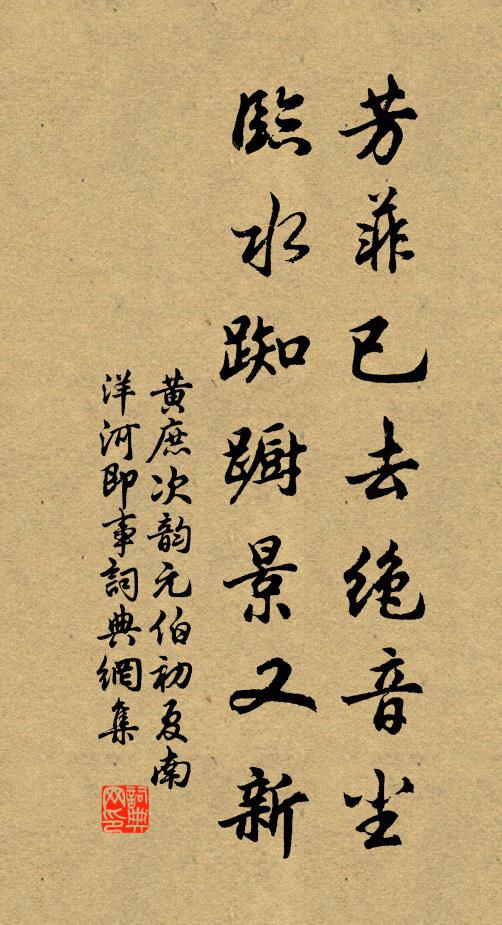 芳菲已去绝音尘
临水踟蹰景又新
黄庶次韵元伯初夏南
洋河即事詞典網集
詞典网印